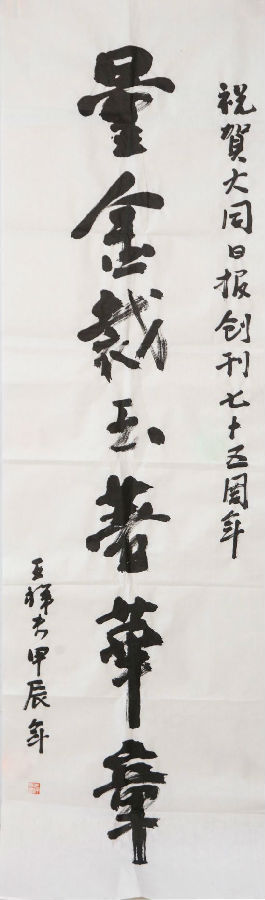 祝贺大同日报创刊七十五周年
量金裁玉著华章
王祥夫甲辰年